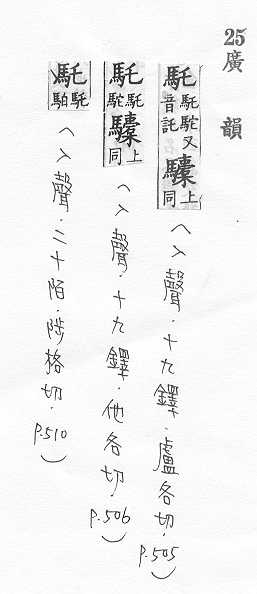 25廣韻
馲
馲駝又
音託
驝
上同
(入聲.十九鐸.盧各切.p.505)
馲
馲駝
驝
上同
(入聲.十九鐸.他各切.p.506)
馲
馲䭸
(入聲.二十陌.陟格切.p.510)